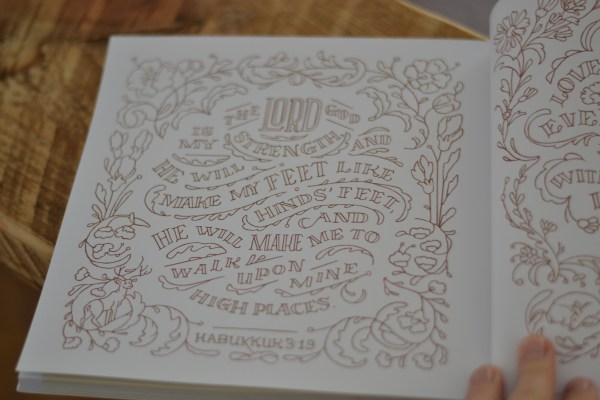 THE LORD GOD
IS MY STRENGTH, AND
HE WILL
MAKE MY FEET LIKE
HINDS' FEET
AND
HE WILL MAKE ME TO
WALK UPON MINE
HIGH PLACES.
HABUKKUK 3:19
LOVE
EVE